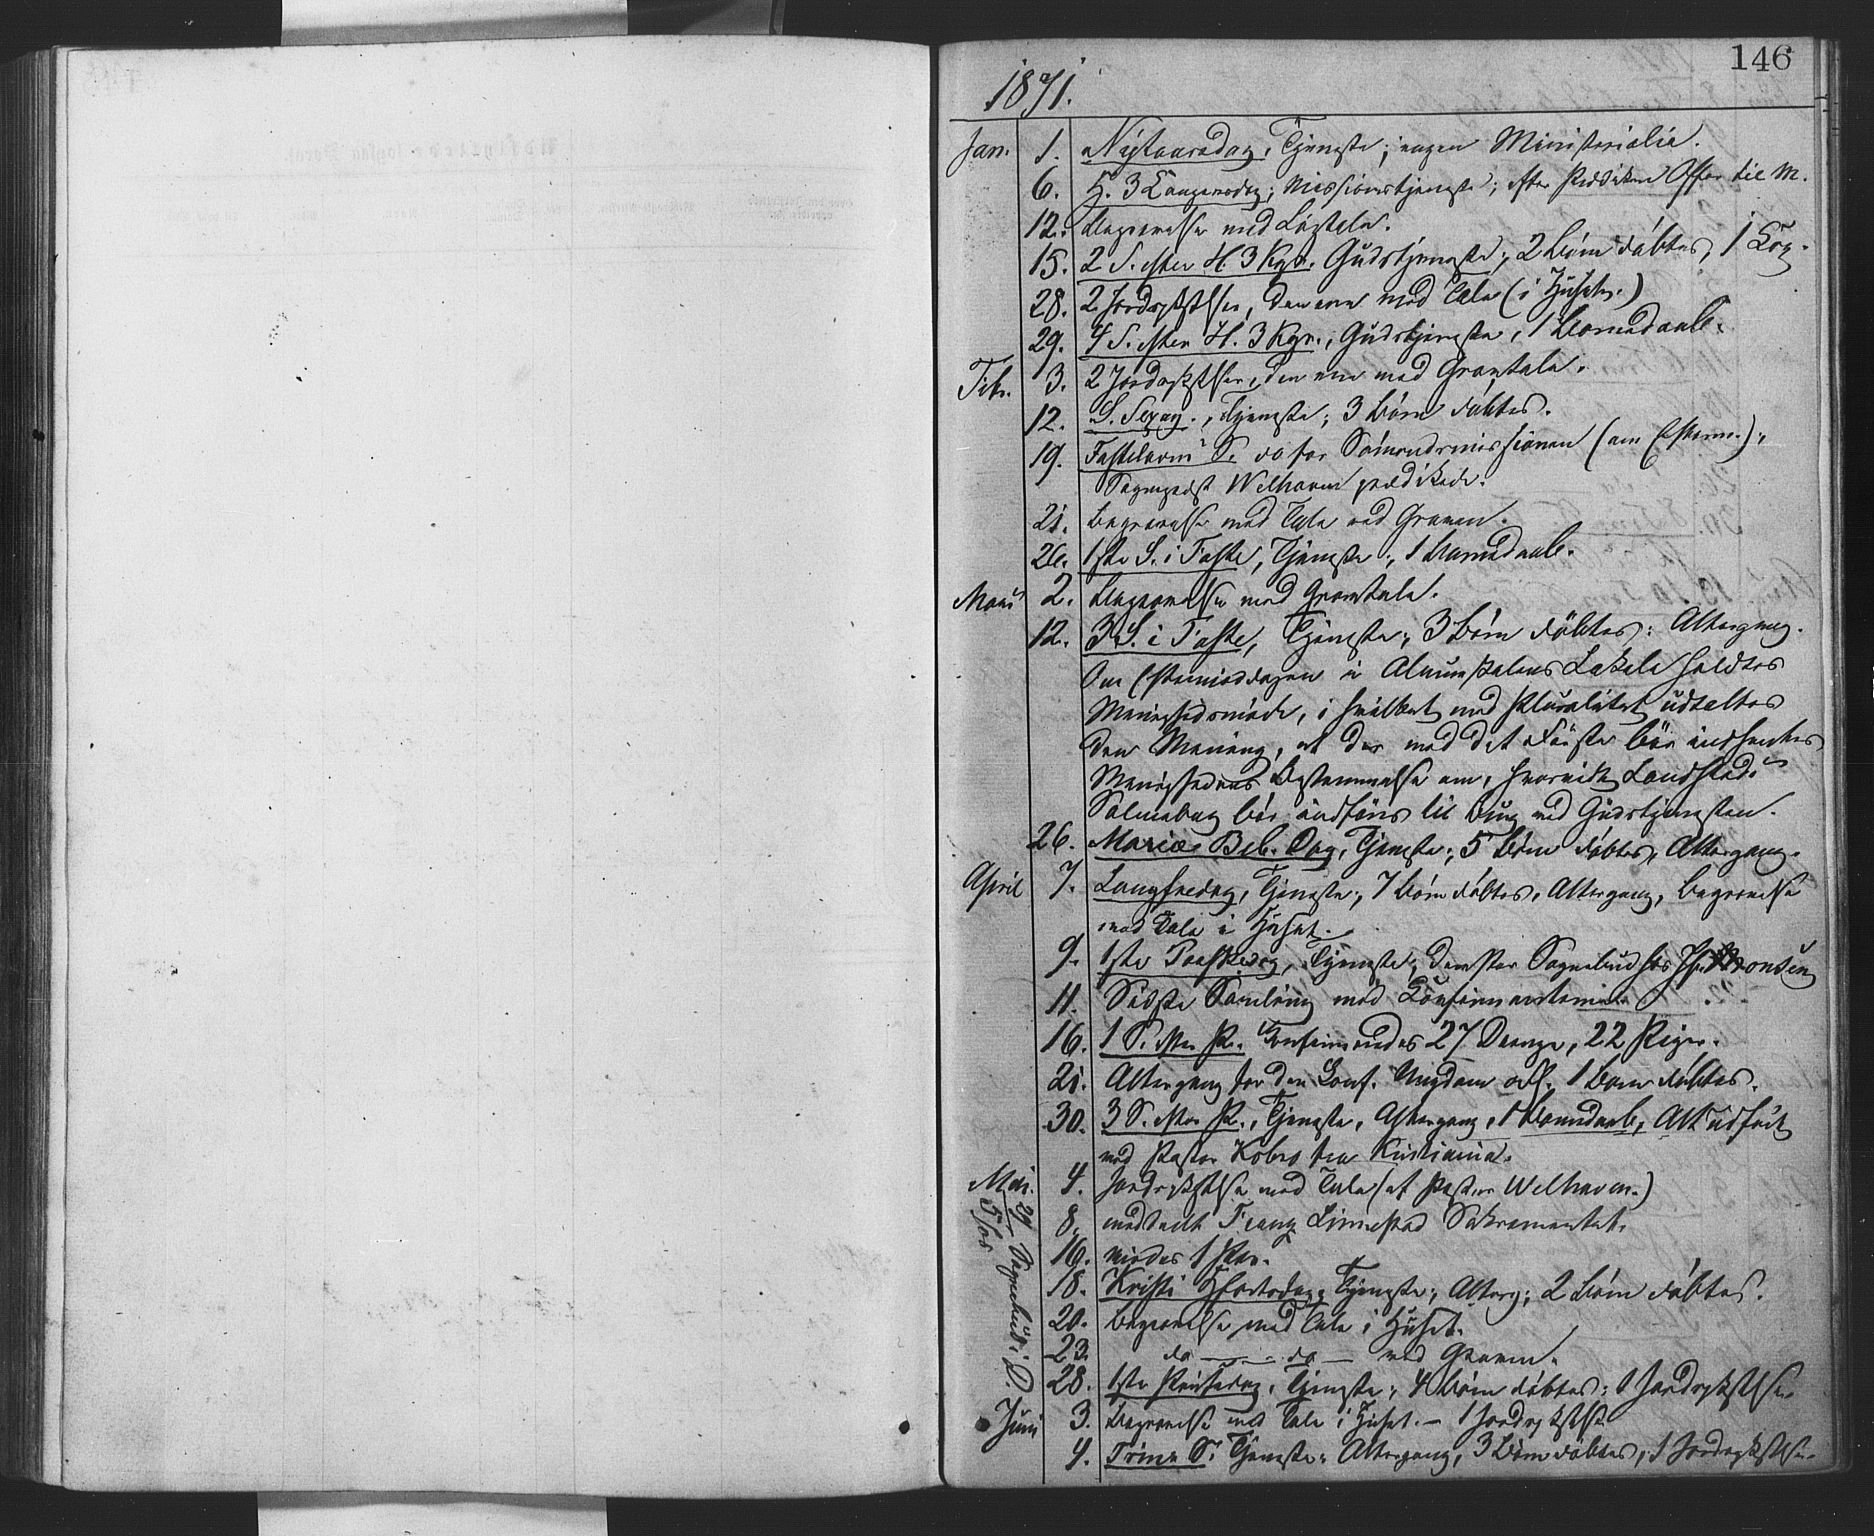 146
1871.
Jan. 1. Nytaarsdag, Tjeneste; ingen Ministerialia.
6. H. 3 Kongersdag; Missionstjeneste; efter Prædiken Offer til M.
12. Begravelse med Ligtale.
15. 2 S. efter H. 3 Kgr. Gudstjeneste; 2 Børn døbtes, 1 Kop.
28. 2 Jordpaakastelser, den ene med Tale (i Huset.)
29. 4 S. efter H. 3 Kgr., Gudstjeneste, 1 Barnedaab.
Febr. 3. 2 Jordpaakastelser, den ene med Gravtale.
12. S. Sexag., Tjeneste; 3 Børn døbtes.
19. Fastelavns S. do for Sømandsmissionen (om Efterm.);
Sognepræst Welhaven prædikede.
21. Begravelse med Tale ved Graven.
26. 1ste S. i Faste, Tjeneste; 1 Barnedaab.
Marts 2. Begravelse med Gravtale.
12. 3 S. i Faste, Tjeneste; 3 Børn døbtes; Altergang.
Om Eftermiddagen i Almueskolens Lokale holdtes
Menighedsmøde, i hvilket med Pluralitet udtaltes
den Mening, at der med det Første bør indhentes
Menighedens Bestemmelse om, hvorvidt Landstads
Salmebog bør indføres til Brug ved Gudstjenesten.
26. Mariæ Beb. Dag, Tjeneste; 5 Børn døbtes, Altergang.
April 7. Langfredag, Tjeneste; 7 Børn døbtes, Altergang, Begravelse
med Tale i Huset.
9. 1ste Paaskedag, Tjeneste; derefter Sognebud hos
11. Sidste Samling med Konfirmanterne.
16. 1 S. efter P. Konfirmeredes 27 Drenge, 22 Piger.
21. Altergang for den Konf. Ungdom 1 Barn døbtes.
30. 3 S. efter P., Tjeneste, Altergang, 1 Barnedaab, Alt udført
ved Pastor Kobro fra Kristiania.
Mai. 4. Jordpaakastelse med Tale (af Pastor Welhaven.)
8. meddeelt Franz Linnestad Sakramentet.
16. viedes 1 Par.
18. Kristi Hfartsdag; Tjeneste; Alterg; 2 Børn døbtes.
20. Begravelse med Tale i Huset.
23. do — do — ved Graven.
28. 1ste Pintsedag, Tjeneste; 4 Børn døbtes; 1 Jordpaakastelse.
29/5 Sognebud i D.
Juni 3. Begravelse med Tale i Huset. — 1 Jordpaakastelse
4. Trinit. S. Tjeneste; Altergang, 3 Børn døbtes, 1 Jordpaakastelse.